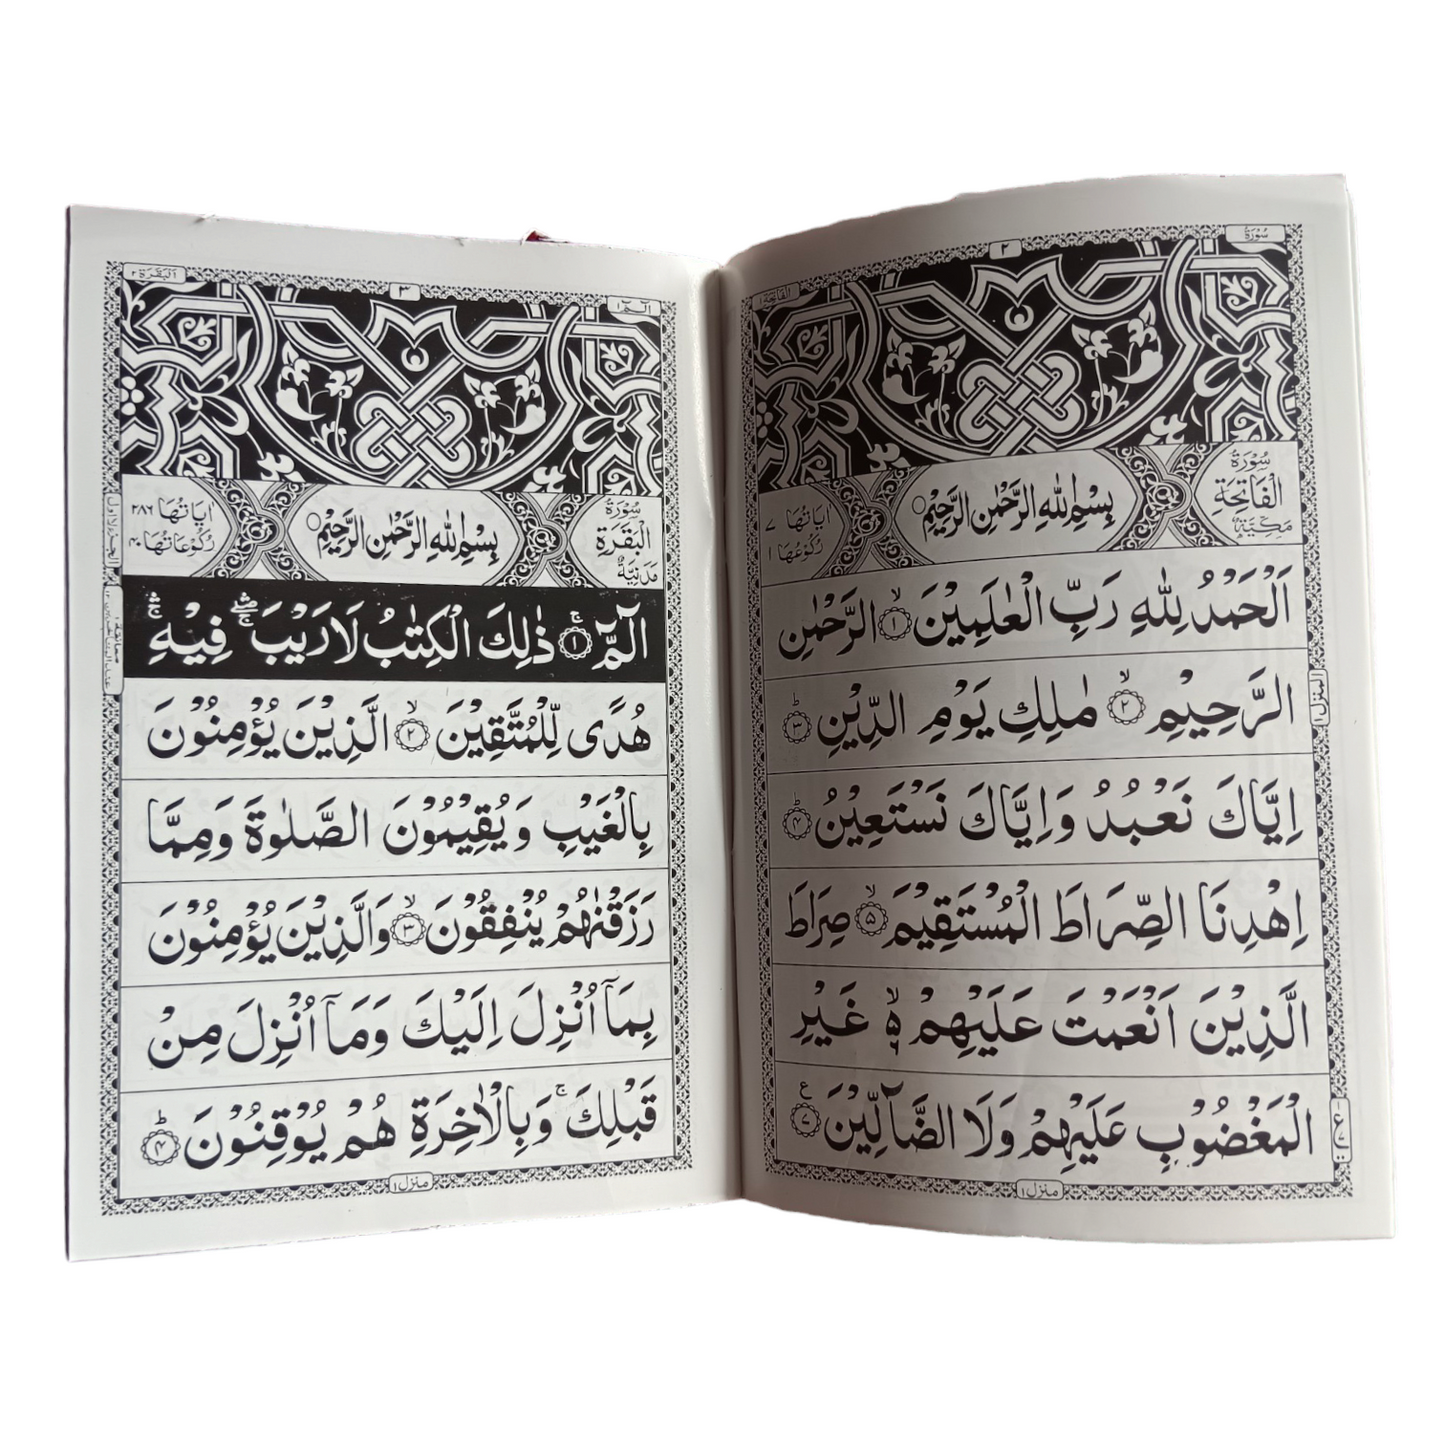 سُوْرَةُ
٢
الفاتحة ١
سُوْرَةُ
الْفَاتِحَةِ
مَكِّيَّةٌ
بِسْمِ اللهِ الرَّحْمٰنِ الرَّحِيْمِ ○
اٰيَاتُهَا ٧
رُكُوْعُهَا ١
اَلْحَمْدُ لِلّٰهِ رَبِّ الْعٰلَمِيْنَ ۙ﴿١﴾ الرَّحْمٰنِ
الرَّحِيْمِ ۙ﴿٢﴾ مٰلِكِ يَوْمِ الدِّيْنِ ؕ﴿٣﴾
اِيَّاكَ نَعْبُدُ وَاِيَّاكَ نَسْتَعِيْنُ ؕ﴿٤﴾
اِهْدِنَا الصِّرَاطَ الْمُسْتَقِيْمَ ۙ﴿٥﴾ صِرَاطَ
الَّذِيْنَ اَنْعَمْتَ عَلَيْهِمْ ۙ۬ۦ غَيْرِ
الْمَغْضُوْبِ عَلَيْهِمْ وَلَا الضَّآلِّيْنَ ﴿٧﴾ ع
المنزل ١
منزل ١
الٓمّٓ ١
٣
البقرة ٢
سُوْرَةُ
الْبَقَرَةِ
مَدَنِيَّةٌ
بِسْمِ اللهِ الرَّحْمٰنِ الرَّحِيْمِ ○
اٰيَاتُهَا ٢٨٦
رُكُوْعَاتُهَا ٤٠
الٓمّٓ ۚ﴿١﴾ ذٰلِكَ الْكِتٰبُ لَا رَيْبَ ۛۖۚ فِيْهِ ۛۚ
هُدًى لِّلْمُتَّقِيْنَ ۙ﴿٢﴾ الَّذِيْنَ يُؤْمِنُوْنَ
بِالْغَيْبِ وَيُقِيْمُوْنَ الصَّلٰوةَ وَمِمَّا
رَزَقْنٰهُمْ يُنْفِقُوْنَ ۙ﴿٣﴾ وَالَّذِيْنَ يُؤْمِنُوْنَ
بِمَآ اُنْزِلَ اِلَيْكَ وَمَآ اُنْزِلَ مِنْ
قَبْلِكَ ۚ وَبِالْاٰخِرَةِ هُمْ يُوْقِنُوْنَ ؕ﴿٤﴾
منزل ١